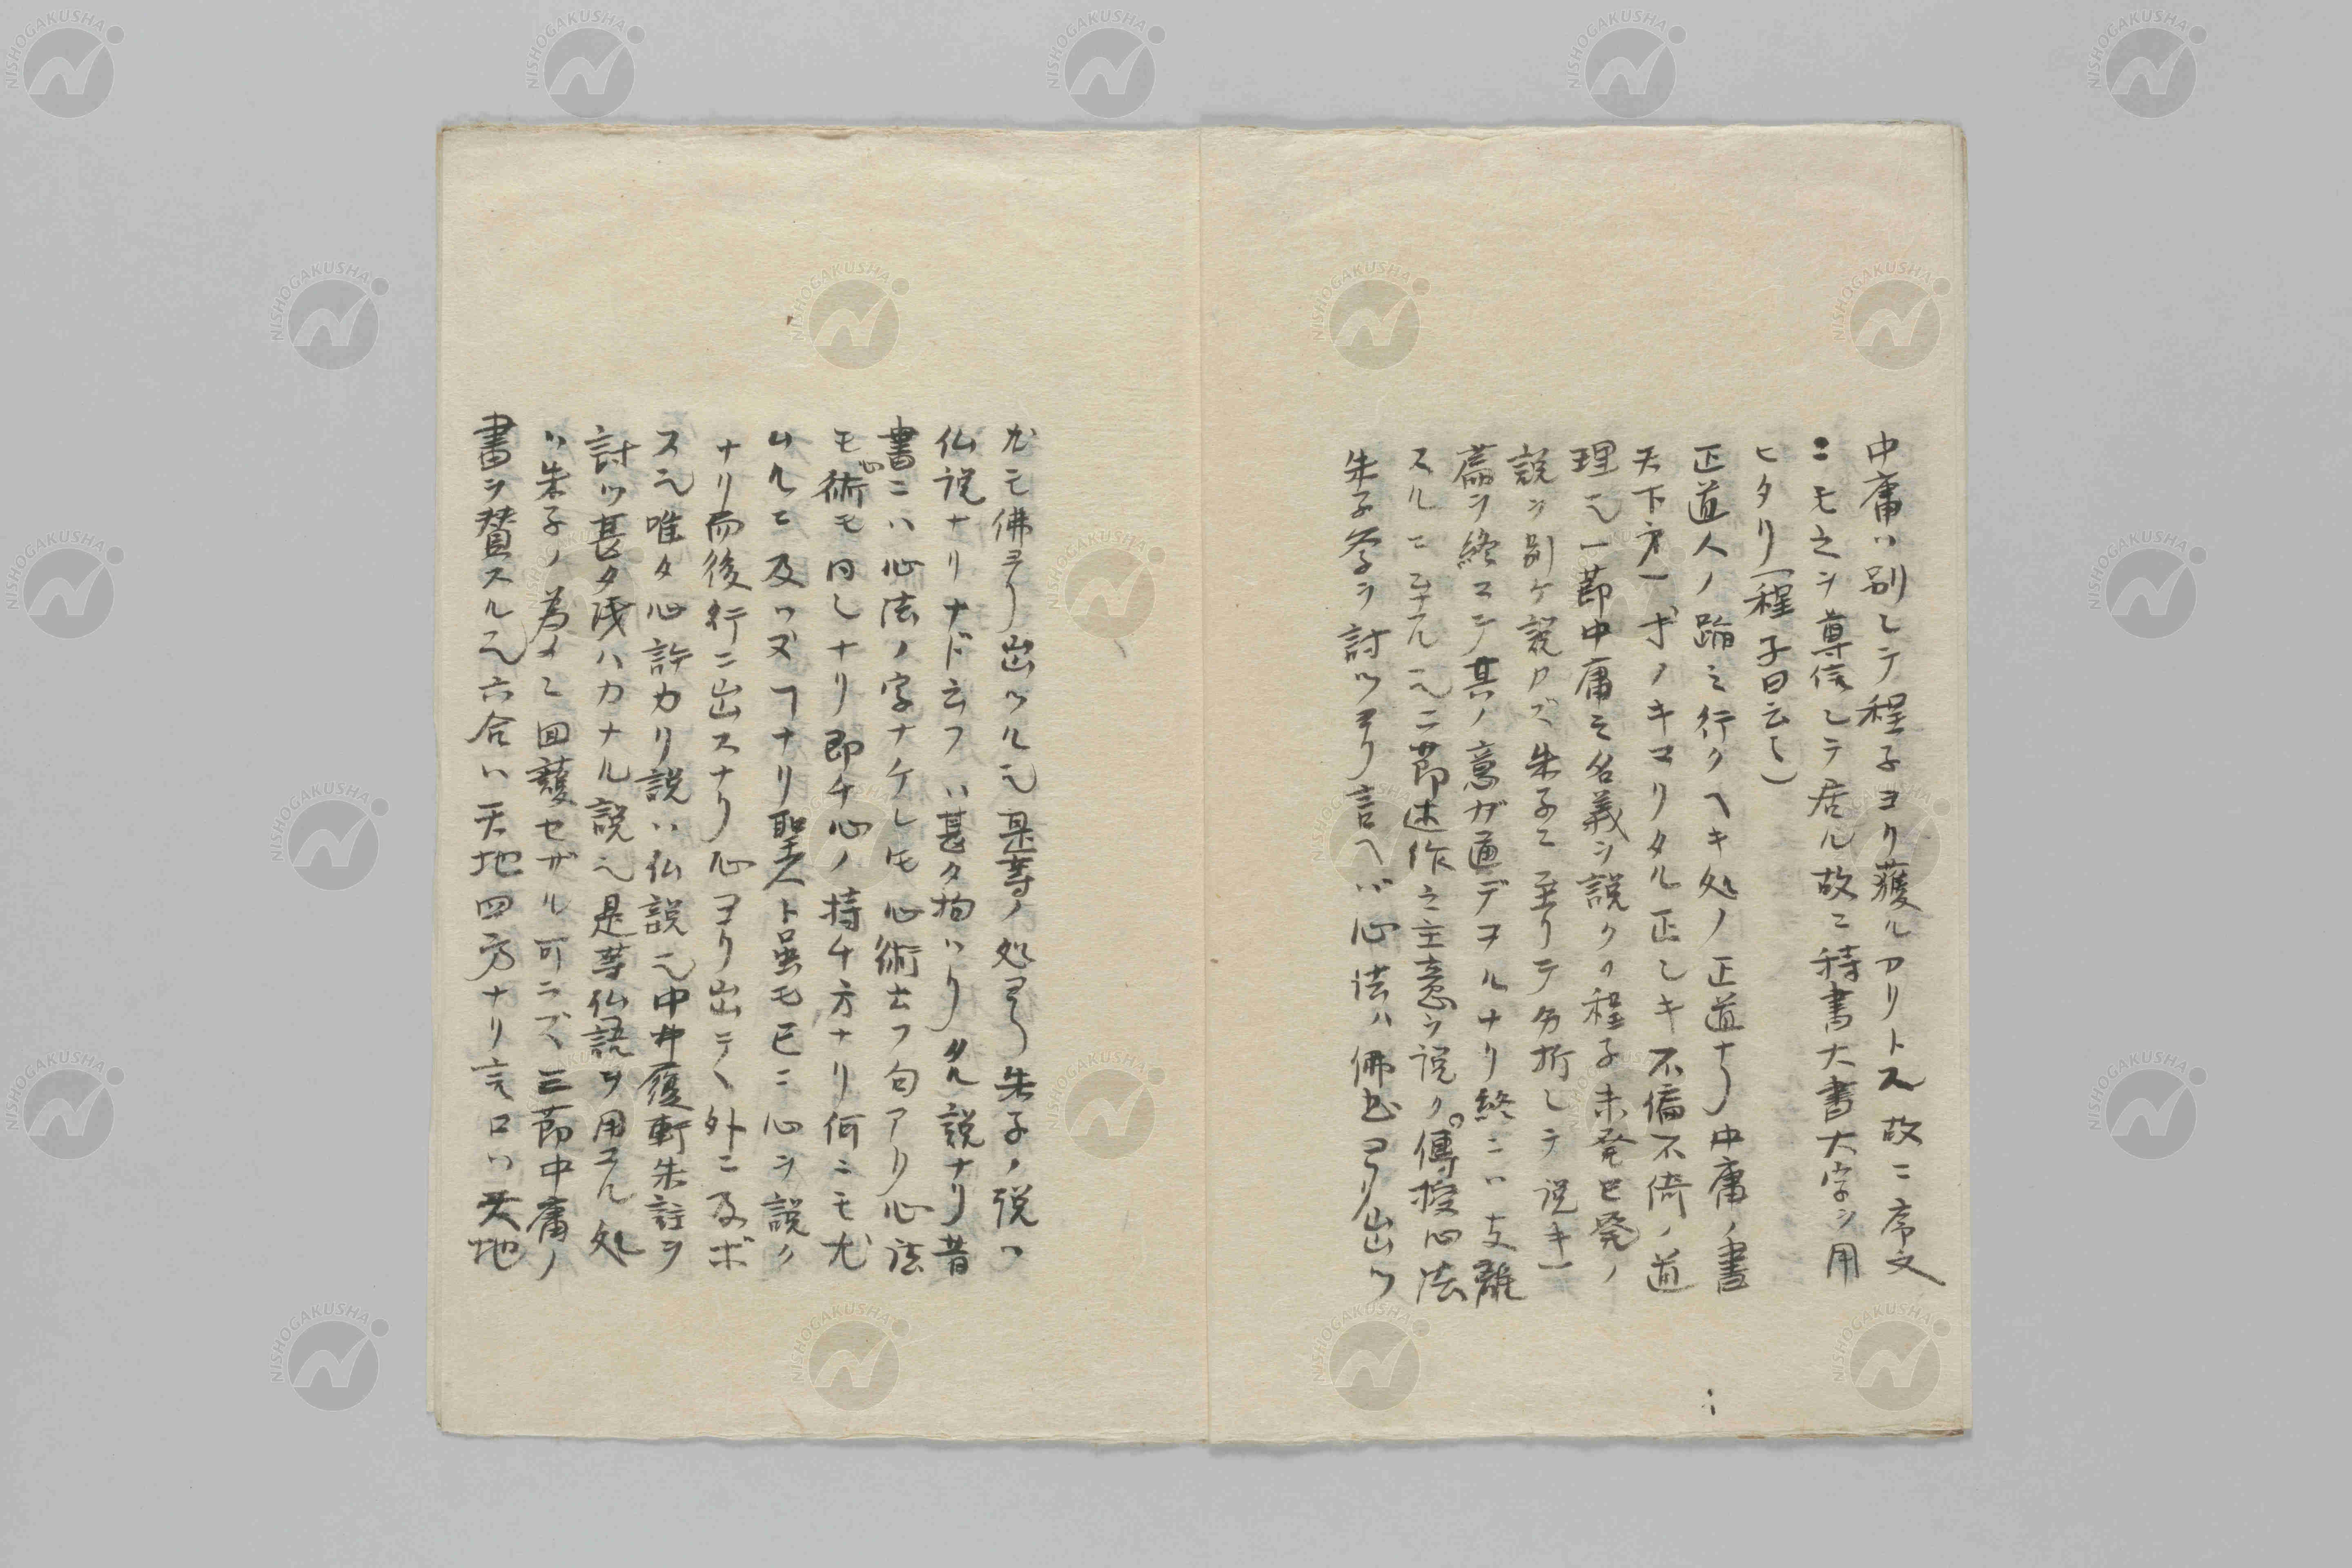 中庸ハ別シテ程子ヨリ獲ルアリトス故ニ序文
ニモ之ヲ尊信シテ居ル故ニ特書大書大字ヲ用
ヒタリ(程子曰云〻)
正道人ノ踏ミ行クヘキ処ノ正道ナリ中庸ノ書
天下第一等ノキマリタル正シキ不偏不倚ノ道
理也一節中庸ノ名義ヲ説クノ程子未発已発ノ
説ヲ別ケ説カズ朱子ニ至リテ分析シテ説キ一
篇ヲ終ヱテ其ノ意ガ通デヲルナリ終ニハ支離
スルニ至ル也二節述作之主意ヲ説ク。傳授心法
朱子学ヲ討ツヨリ言ヘバ心法ハ佛書ヨリ出ツ
尤モ佛ヨリ出ツル也是等ノ処ヨリ朱子ノ説ヲ
仏説ナリナド云フハ甚タ拘ハリタル説ナリ昔
書ニハ心法ノ字ナケレ𪜈心術ト云フ句アリ心法
モ心術モ同シナリ即チ心ノ持チ方ナリ何ニモ尤
ムルニ及ハヌヿナリ聖人ト虽モ已ニ心ヲ説ク
ナリ而後行ニ出スナリ心ヨリ出テヽ外ニ及ボ
ス也唯タ心許カリ説ハ仏説也中井履軒朱註ヲ
討ツ甚タ浅ハカナル説也是等仏語ヲ用ユル処
ハ朱子ノ為メニ回護セザル可ラズ三節中庸ノ
書ヲ賛スル也六合ハ天地四方ナリ言ロハ天地